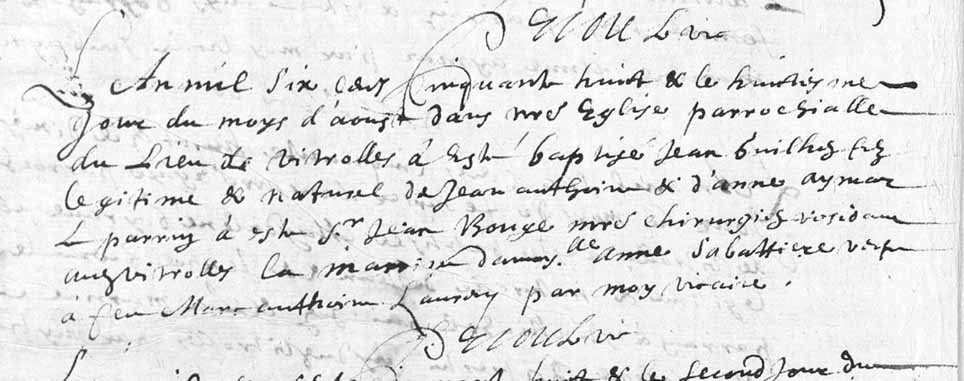 Lan mil six cens Cinquante huict & le huictiesme
Jour du moys d'aoust dans nre Eglise parrochialle
du Lieu de vitrolles à Esté baptizé Jean Guilhen filz
legitime & naturel de Jean anthoine & d'anne aymar
Le parrin à esté Sr Jean Rouge mre chirurgien residant
audit vitrolles la marrine damoyselle anne Sabattiere vefve
à feu Marc anthoine Laurens par moy vicaire.
huict & le second Jour du